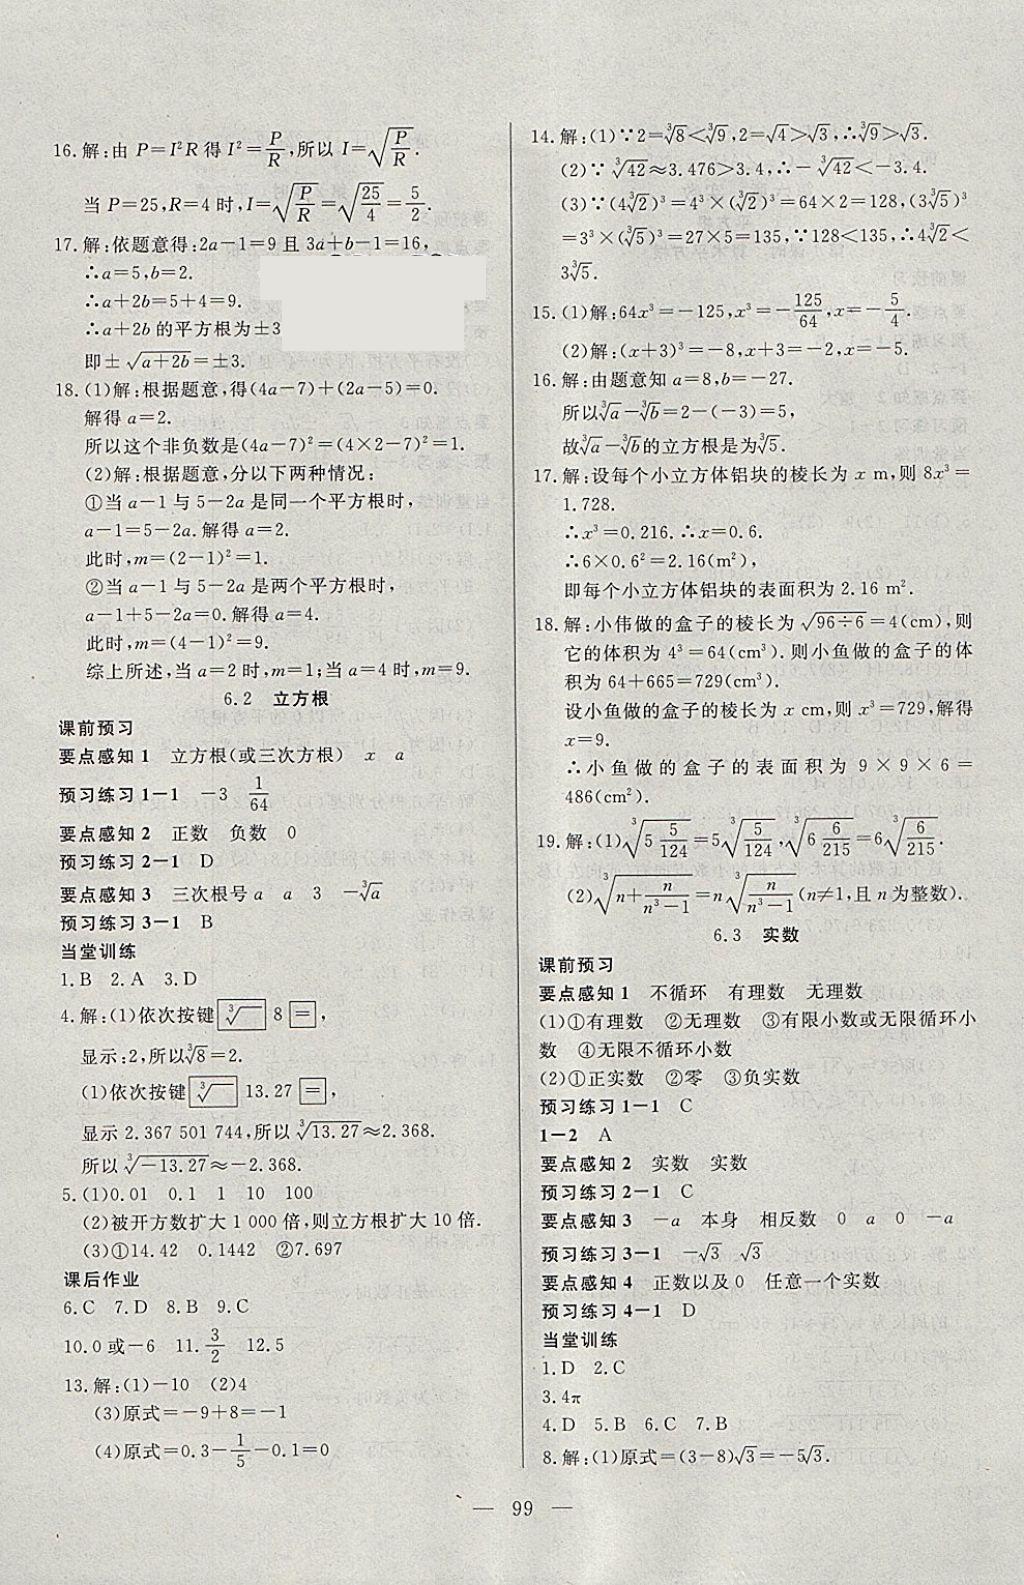 16.解:由 P=I²R 得 I²=P/R,所以 I=√(P/R).
当 P=25,R=4 时,I=√(P/R)=√(25/4)=5/2.
17.解:依题意得:2a-1=9 且 3a+b-1=16,
∴a=5,b=2.
∴a+2b=5+4=9.
∴a+2b 的平方根为±3
即±√(a+2b)=±3.
18.(1)解:根据题意,得(4a-7)+(2a-5)=0.
解得 a=2.
所以这个非负数是(4a-7)²=(4×2-7)²=1.
(2)解:根据题意,分以下两种情况:
①当 a-1 与 5-2a 是同一个平方根时,
a-1=5-2a.解得 a=2.
此时,m=(2-1)²=1.
②当 a-1 与 5-2a 是两个平方根时,
a-1+5-2a=0.解得 a=4.
此时,m=(4-1)²=9.
综上所述,当 a=2 时,m=1;当 a=4 时,m=9.
6.2 立方根
课前预习
要点感知 1 立方根(或三次方根) x a
预习练习 1-1 -3 1/64
要点感知 2 正数 负数 0
预习练习 2-1 D
要点感知 3 三次根号 a a 3 -∛a
预习练习 3-1 B
当堂训练
1.B 2.A 3.D
4.解:(1)依次按键 ∛ 8 =,
显示:2,所以∛8=2.
(1)依次按键 ∛ 13.27 =,
显示 2.367 501 744,所以∛13.27≈2.368.
所以∛-13.27≈-2.368.
5.(1)0.01 0.1 1 10 100
(2)被开方数扩大 1 000 倍,则立方根扩大 10 倍.
(3)①14.42 0.1442 ②7.697
课后作业
6.C 7.D 8.B 9.C
10.0 或-6 11.3/2 12.5
13.解:(1)-10 (2)4
(3)原式=-9+8=-1
(4)原式=0.3-1/5-0.1=0
14.解:(1)∵2=∛8<∛9,2=√4>√3,∴∛9>√3.
(2)∵∛42≈3.476>3.4,∴-∛42<-3.4.
(3)∵(4∛2)³=4³×(∛2)³=64×2=128,(3∛5)³
=3³×(∛5)³=27×5=135,∵128<135,∴4∛2<
3∛5.
15.(1)解:64x³=-125,x³=-125/64,x=-5/4.
(2)解:(x+3)³=-8,x+3=-2,x=-5.
16.解:由题意知 a=8,b=-27.
所以∛a-∛b=2-(-3)=5,
故∛a-∛b的立方根是为∛5.
17.解:设每个小立方体铝块的棱长为 x m,则 8x³=
1.728.
∴x³=0.216.∴x=0.6.
∴6×0.6²=2.16(m²),
即每个小立方体铝块的表面积为 2.16 m².
18.解:小伟做的盒子的棱长为√96÷6=4(cm),则
它的体积为 4³=64(cm³).则小鱼做的盒子的体
积为 64+665=729(cm³).
设小鱼做的盒子的棱长为 x cm,则 x³=729,解得
x=9.
∴小鱼做的盒子的表面积为 9×9×6=
486(cm²).
19.解:(1)∛(5 5/124)=5∛(5/124),∛(6 6/215)=6∛(6/215).
(2)∛(n+n/(n³-1))=n∛(n/(n³-1))(n≠1,且 n 为整数).
6.3 实数
课前预习
要点感知 1 不循环 有理数 无理数
(1)①有理数 ②无理数 ③有限小数或无限循环小
数 ④无限不循环小数
(2)①正实数 ②零 ③负实数
预习练习 1-1 C
1-2 A
要点感知 2 实数 实数
预习练习 2-1 C
要点感知 3 -a 本身 相反数 0 a 0 -a
预习练习 3-1 -√3 √3
要点感知 4 正数以及 0 任意一个实数
预习练习 4-1 D
当堂训练
1.D 2.C
3.4π
4.D 5.B 6.C 7.B
8.解:(1)原式=(3-8)√3=-5√3.
— 99 —